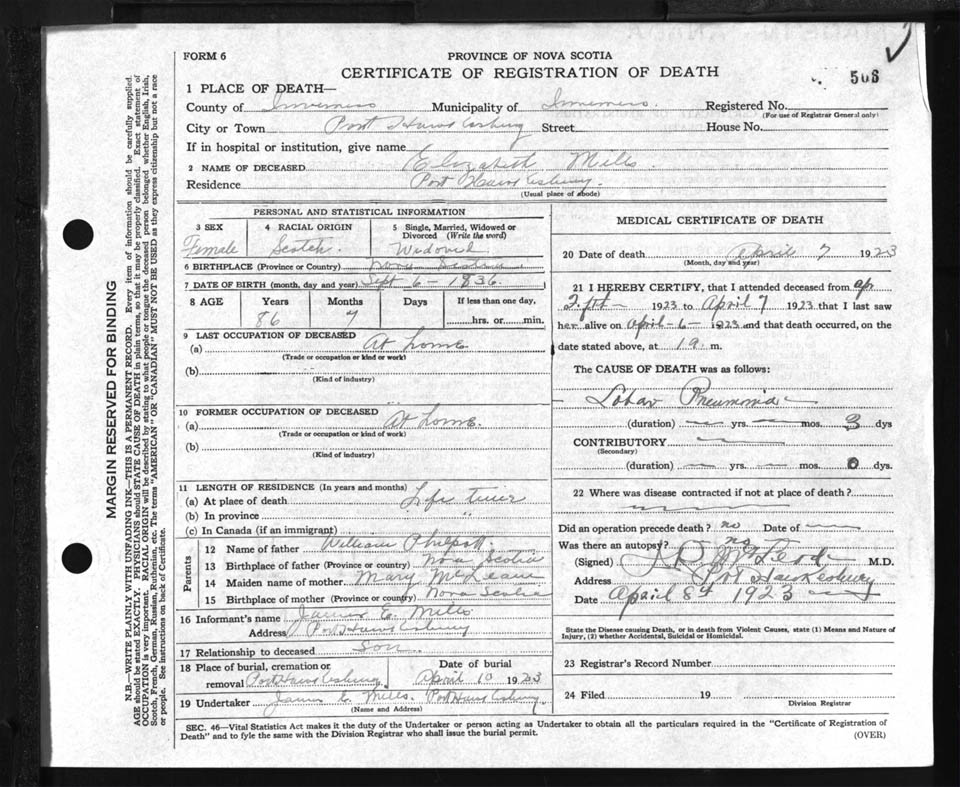 FORM 6
PROVINCE OF NOVA SCOTIA
CERTIFICATE OF REGISTRATION OF DEATH
506
1 PLACE OF DEATH—
County of Inverness Municipality of Inverness. Registered No.
(For use of Registrar General only)
City or Town Port Hawkesbury Street House No.
If in hospital or institution, give name
2 NAME OF DECEASED Elizabeth Mills
Residence Port Hawkesbury.
(Usual place of abode)
PERSONAL AND STATISTICAL INFORMATION
3 SEX
Female
4 RACIAL ORIGIN
Scotch.
5 Single, Married, Widowed or Divorced (Write the word)
Widowed
6 BIRTHPLACE (Province or Country) Nova Scotia
7 DATE OF BIRTH (month, day and year) Sept 6 - 1836.
8 AGE Years Months Days If less than one day,
86 7 hrs. or min.
9 LAST OCCUPATION OF DECEASED
(a) At home
(Trade or occupation or kind or work)
(b)
(Kind of industry)
10 FORMER OCCUPATION OF DECEASED
(a) At home.
(Trade or occupation or kind of work)
(b)
(Kind of industry)
11 LENGTH OF RESIDENCE (In years and months)
(a) At place of death Life time
(b) In province "
(c) In Canada (if an immigrant)
Parents
12 Name of father William Philpott
13 Birthplace of father (Province or country) Nova Scotia
14 Maiden name of mother Mary McLean
15 Birthplace of mother (Province or country) Nova Scotia
16 Informant's name James E. Mills
Address Port Hawkesbury
17 Relationship to deceased Son
18 Place of burial, cremation or removal Port Hawkesbury Date of burial April 10 1923
19 Undertaker James E. Mills. Port Hawkesbury
(Name and Address)
MEDICAL CERTIFICATE OF DEATH
20 Date of death April 7 1923
(Month, day and year)
21 I HEREBY CERTIFY, that I attended deceased from Ap
1923 to April 7 1923 that I last saw
her alive on April - 6 - 1923 and that death occurred, on the
date stated above, at m.
The CAUSE OF DEATH was as follows:
Lobar Pneumonia
(duration) yrs. mos. 3 dys
CONTRIBUTORY
(Secondary)
(duration) yrs. mos. 0 dys.
22 Where was disease contracted if not at place of death?
Did an operation precede death? no Date of
Was there an autopsy? no
(Signed) McLeod M.D.
Address Port Hawkesbury
Date April 8th 1923
State the Disease causing Death, or in death from Violent Causes, state (1) Means and Nature of
Injury, (2) whether Accidental, Suicidal or Homicidal.
23 Registrar's Record Number
24 Filed 19
Division Registrar
SEC. 46—Vital Statistics Act makes it the duty of the Undertaker or person acting as Undertaker to obtain all the particulars required in the "Certificate of Registration of
Death" and to fyle the same with the Division Registrar who shall issue the burial permit.
(OVER)
MARGIN RESERVED FOR BINDING
N.B.—WRITE PLAINLY WITH UNFADING INK—THIS IS A PERMANENT RECORD. Every item of information should be carefully supplied.
AGE should be stated EXACTLY. PHYSICIANS should STATE CAUSE OF DEATH in plain terms, so that it may be properly classified. Exact statement of
OCCUPATION is very important. RACIAL ORIGIN will be described by stating to what people or tongue the deceased person belonged whether English, Irish,
Scotch, French, German, Russian, Ruthenian, etc. The terms "AMERICAN" OR "CANADIAN" MUST NOT BE USED as they express citizenship but not a race
or people. See instructions on back of Certificate.